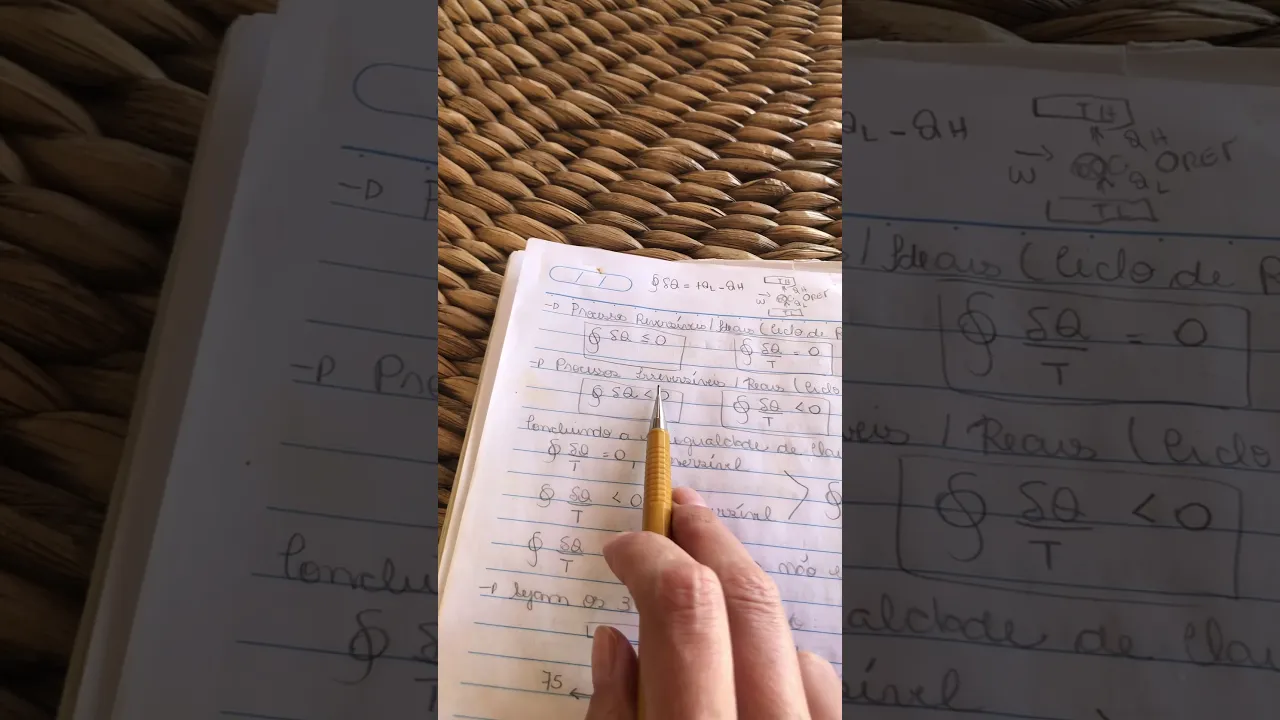 ∮ δQ = +QL - QH
TH
QH
W → OPER
QL
TL
→ Processos Reversíveis / Ideais (Ciclo de
∮ δQ ≤ 0 ∮ δQ/T = 0
→ Processos Irreversíveis / Reais (Ciclo
∮ δQ < 0 ∮ δQ/T < 0
Concluindo a igualdade de Clau
∮ δQ/T = 0,
∮ δQ/T < 0
∮ δQ/T não
→ Sejam os 3
75 ←